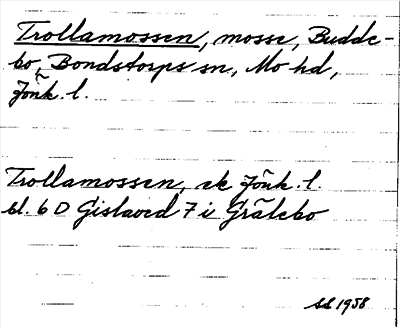 Trollamossen, mosse, Budde-
bo, Bondstorps sn, Mo hd,
Jönk. l.
Trollamossen, ek Jönk. l.
bl. 6 D Gislaved 7 i Grälebo
SS 1958